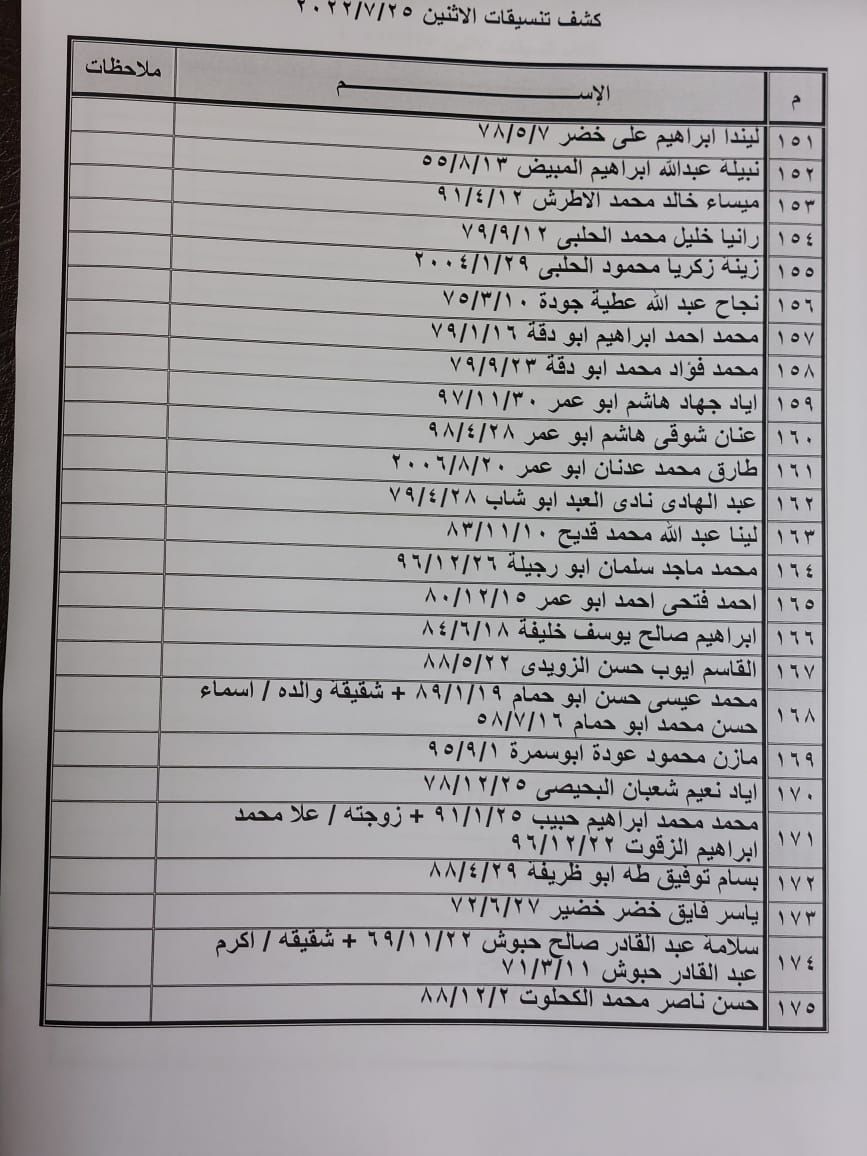 كشف تنسيقات الاثنين ٢٠٢٢/٧/٢٥
م الإســـــــــــم ملاحظات
١٥١ ليندا ابراهيم على خضر ٧٨/٥/٧
١٥٢ نبيلة عبدالله ابراهيم المبيض ٥٥/٨/١٣
١٥٣ ميساء خالد محمد الاطرش ٩١/٤/١٢
١٥٤ رانيا خليل محمد الحلبى ٧٩/٩/١٢
١٥٥ زينة زكريا محمود الحلبى ٢٠٠٤/١/٢٩
١٥٦ نجاح عبد الله عطية جودة ٧٥/٣/١٠
١٥٧ محمد احمد ابراهيم ابو دقة ٧٩/١/١٦
١٥٨ محمد فؤاد محمد ابو دقة ٧٩/٩/٢٣
١٥٩ اياد جهاد هاشم ابو عمر ٩٧/١١/٣٠
١٦٠ عنان شوقى هاشم ابو عمر ٩٨/٤/٢٨
١٦١ طارق محمد عدنان ابو عمر ٢٠٠٦/٨/٢٠
١٦٢ عبد الهادى نادى العبد ابو شاب ٧٩/٤/٢٨
١٦٣ لينا عبد الله محمد قديح ٨٣/١١/١٠
١٦٤ محمد ماجد سلمان ابو رجيلة ٩٦/١٢/٢٦
١٦٥ احمد فتحى احمد ابو عمر ٨٠/١٢/١٥
١٦٦ ابراهيم صالح يوسف خليفة ٨٤/٦/١٨
١٦٧ القاسم ايوب حسن الزويدى ٨٨/٥/٢٢
١٦٨ محمد عيسى حسن ابو حمام ٨٩/١/١٩ + شقيقة والده / اسماء
حسن محمد ابو حمام ٥٨/٧/١٦
١٦٩ مازن محمود عودة ابوسمرة ٩٥/٩/١
١٧٠ اياد نعيم شعبان البحيصى ٧٨/١٢/٢٥
١٧١ محمد محمد ابراهيم حبيب ٩١/١/٢٥ + زوجته / علا محمد
ابراهيم الزقوت ٩٦/١٢/٢٢
١٧٢ بسام توفيق طه ابو ظريفة ٨٨/٤/٢٩
١٧٣ ياسر فايق خضر خضير ٧٢/٦/٢٧
١٧٤ سلامة عبد القادر صالح حبوش ٦٩/١١/٢٢ + شقيقه / اكرم
عبد القادر حبوش ٧١/٣/١١
١٧٥ حسن ناصر محمد الكحلوت ٨٨/١٢/٢